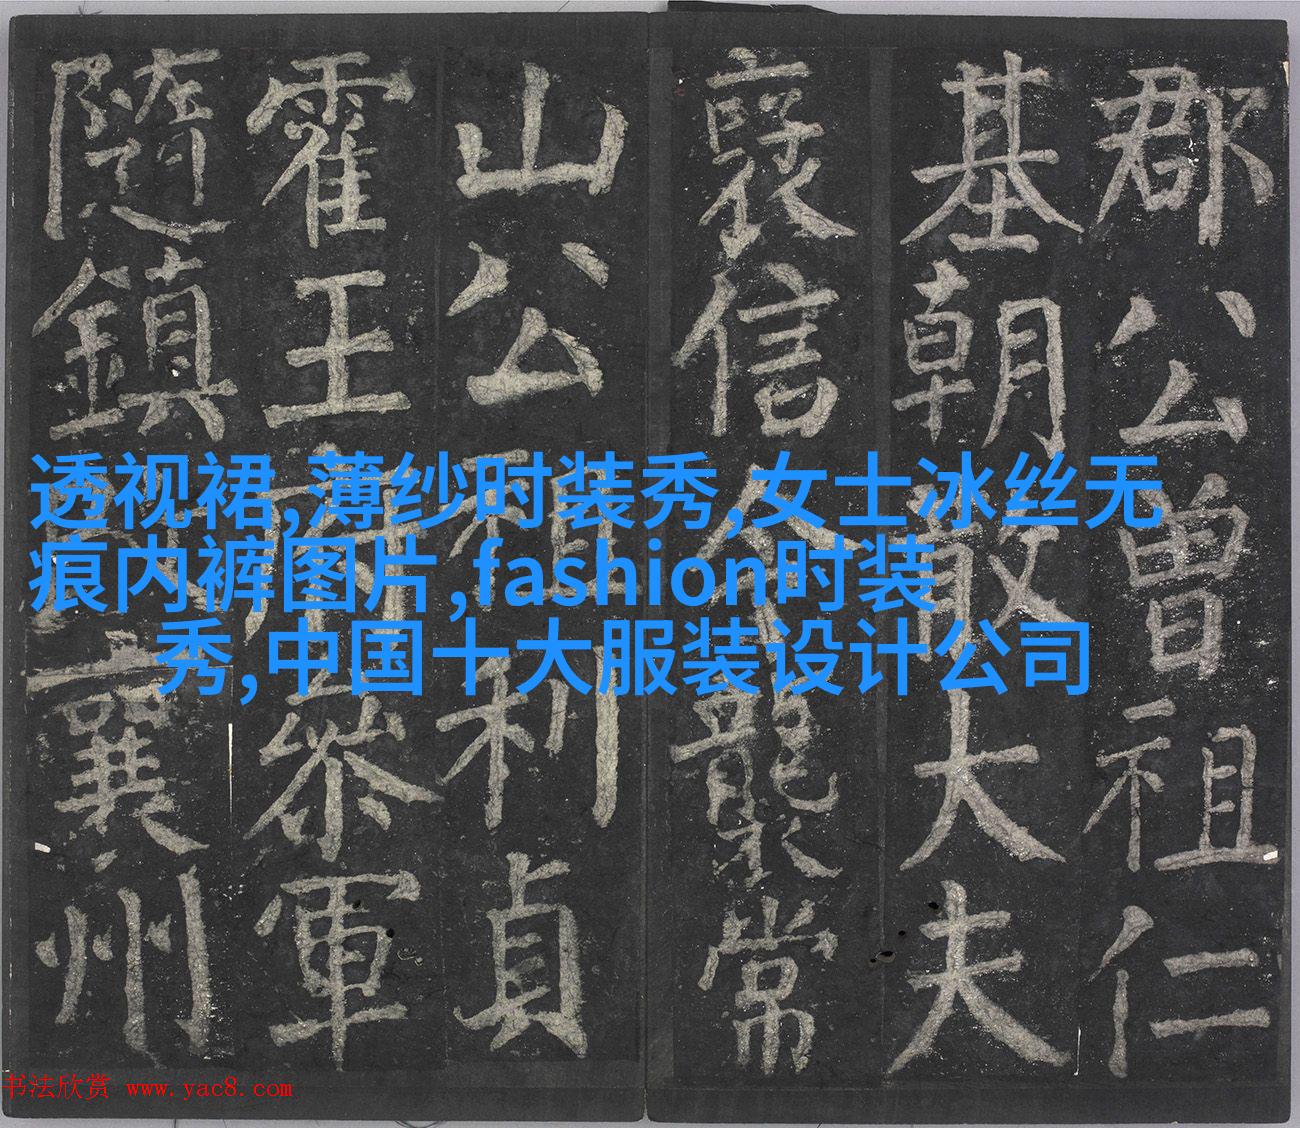 郡公曾祖仁
基朝散大夫
襃信令襲常
山公祖利貞
霍王府叅軍
隨鎮襄州
透视裙,薄纱时装秀,女士冰丝无
痕内裤图片,fashion时装
秀,中国十大服装设计公司
书法欣赏 www.yac8.com